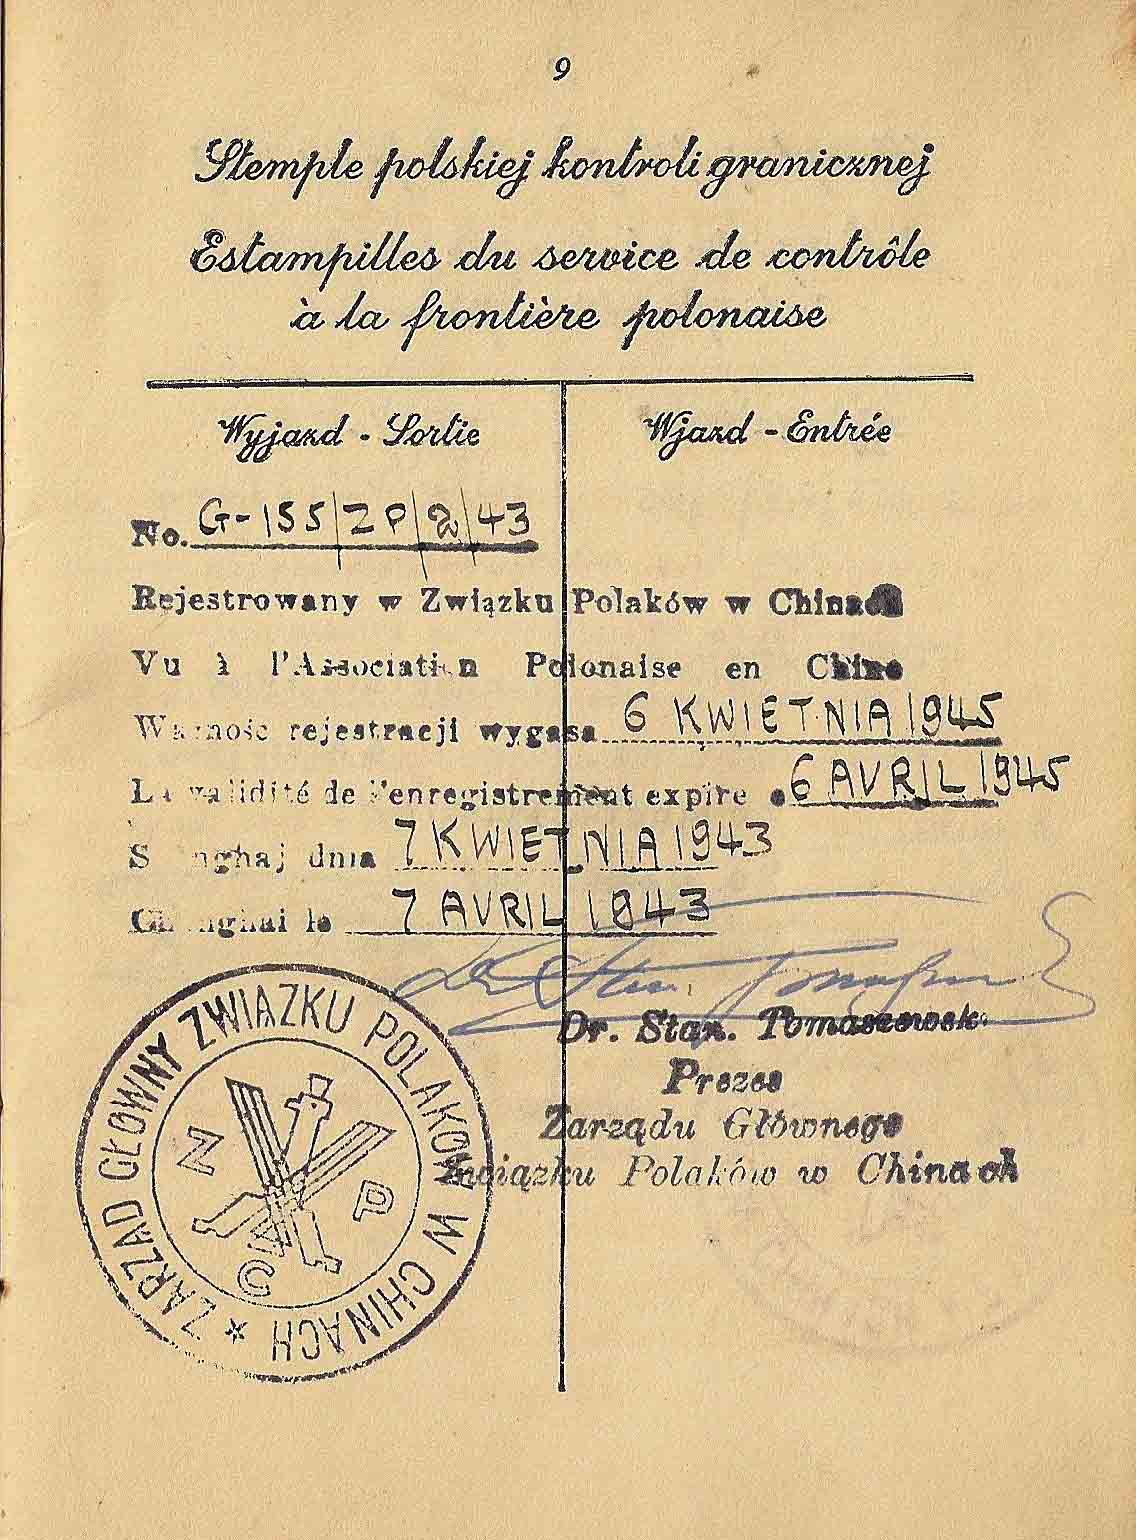 9
Stemple polskiej kontroli granicznej
Estampilles du service de contrôle
à la frontière polonaise
Wyjazd - Sortie
Wjazd - Entrée
No. G-155/ZP/2/43
Rejestrowany w Związku Polaków w Chinach
Vu à l'Association Polonaise en Chine
Ważność rejestracji wygasa 6 KWIETNIA 1945
La validité de l'enregistrement expire 6 AVRIL 1945
Szanghaj dnia 7 KWIETNIA 1943
Changhai le 7 AVRIL 1943
Dr. Stan. Tomaszewski
Prezes
Zarządu Głównego
Związku Polaków w Chinach
ZARZĄD GŁOWNY ZWIĄZKU POLAKOW W CHINACH *
Z P
C